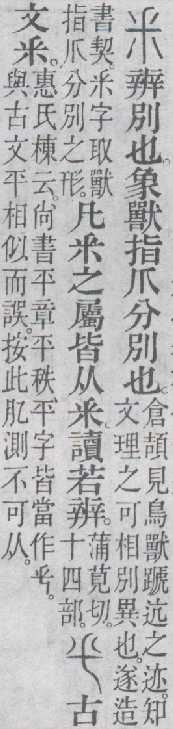 釆辨別也。象獸指爪分別也。倉頡見鳥獸蹏迒之迹。知文理之可相別異也。遂造
書契。釆字取獸指爪分別之形。凡釆之屬皆从釆。讀若辨。蒲莧切。十四部。𠂒古
文釆。惠氏棟云。尚書平章平秩。平字皆當作𠂒。與古文平相似而誤。按此肊測不可从。